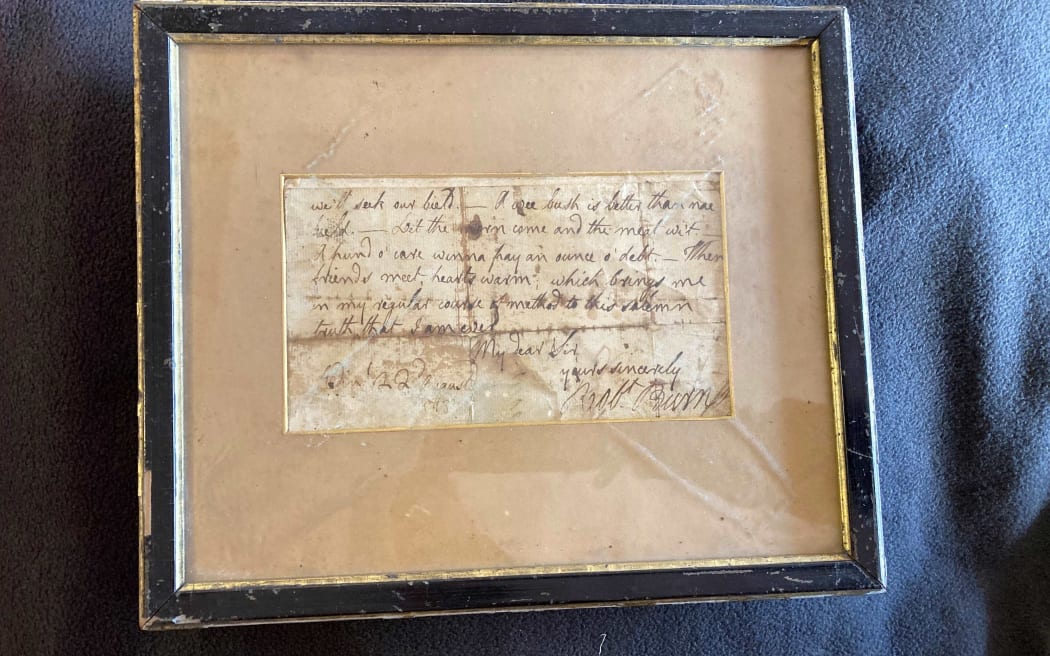 we'll seek our bield. — A wee bush is better than nae
bield. — Let the morn come and the meat wi't —
A pund o' care winna pay an ounce o' debt. — When
friends meet hearts warm; which brings me
in my regular course of method to this solemn
truth that I am ever
My dear Sir
yours sincerely
22d August
Robt Burns